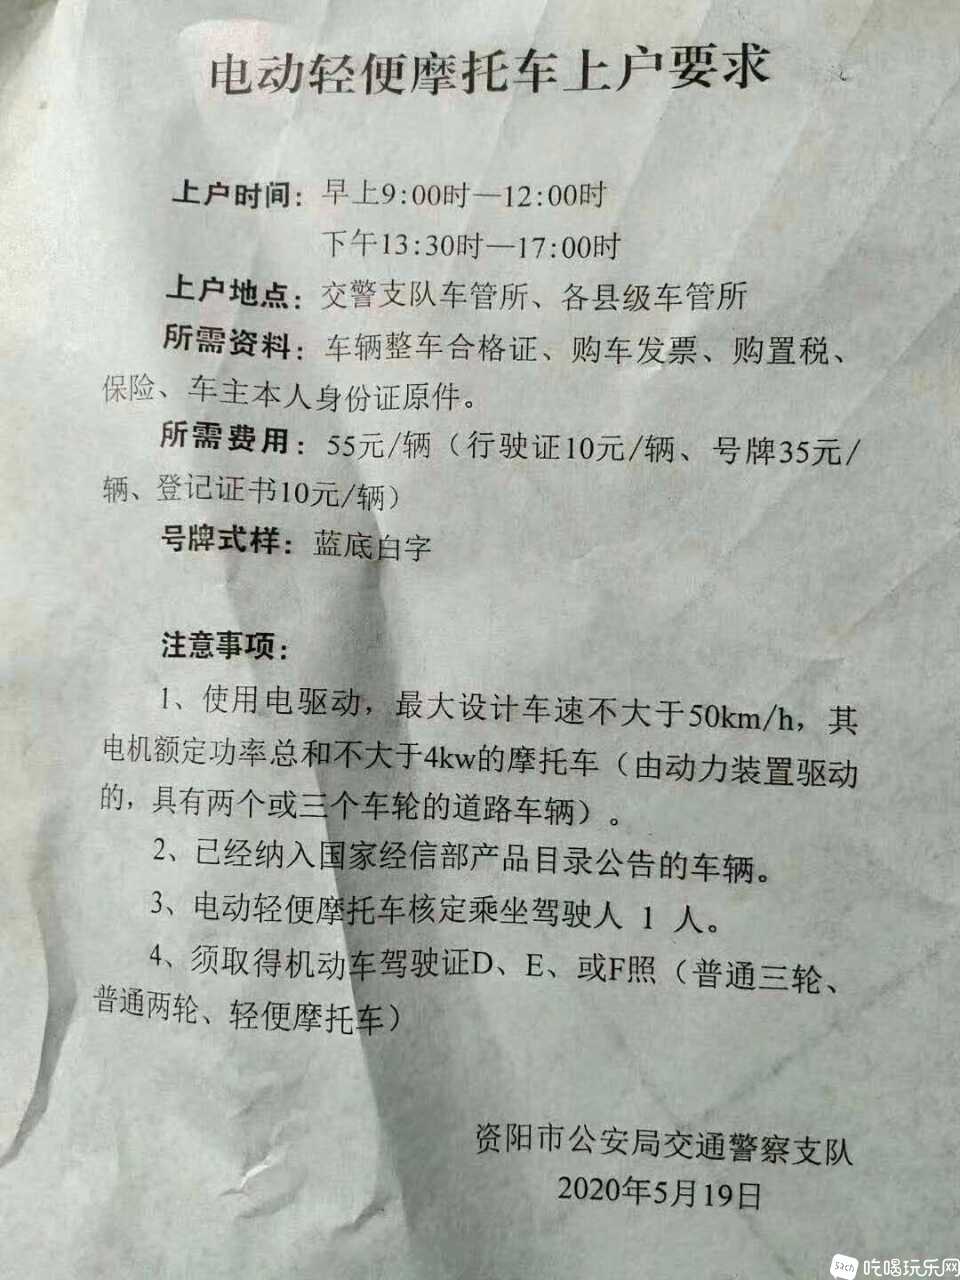 电动轻便摩托车上户要求
上户时间：早上9:00时—12:00时
下午13:30时—17:00时
上户地点：交警支队车管所、各县级车管所
所需资料：车辆整车合格证、购车发票、购置税、
保险、车主本人身份证原件。
所需费用：55元/辆（行驶证10元/辆、号牌35元/
辆、登记证书10元/辆）
号牌式样：蓝底白字
注意事项：
1、使用电驱动，最大设计车速不大于50km/h，其
电机额定功率总和不大于4kw的摩托车（由动力装置驱动
的，具有两个或三个车轮的道路车辆）。
2、已经纳入国家经信部产品目录公告的车辆。
3、电动轻便摩托车核定乘坐驾驶人 1 人。
4、须取得机动车驾驶证D、E、或F照（普通三轮、
普通两轮、轻便摩托车）
资阳市公安局交通警察支队
2020年5月19日
sach 吃喝玩乐网